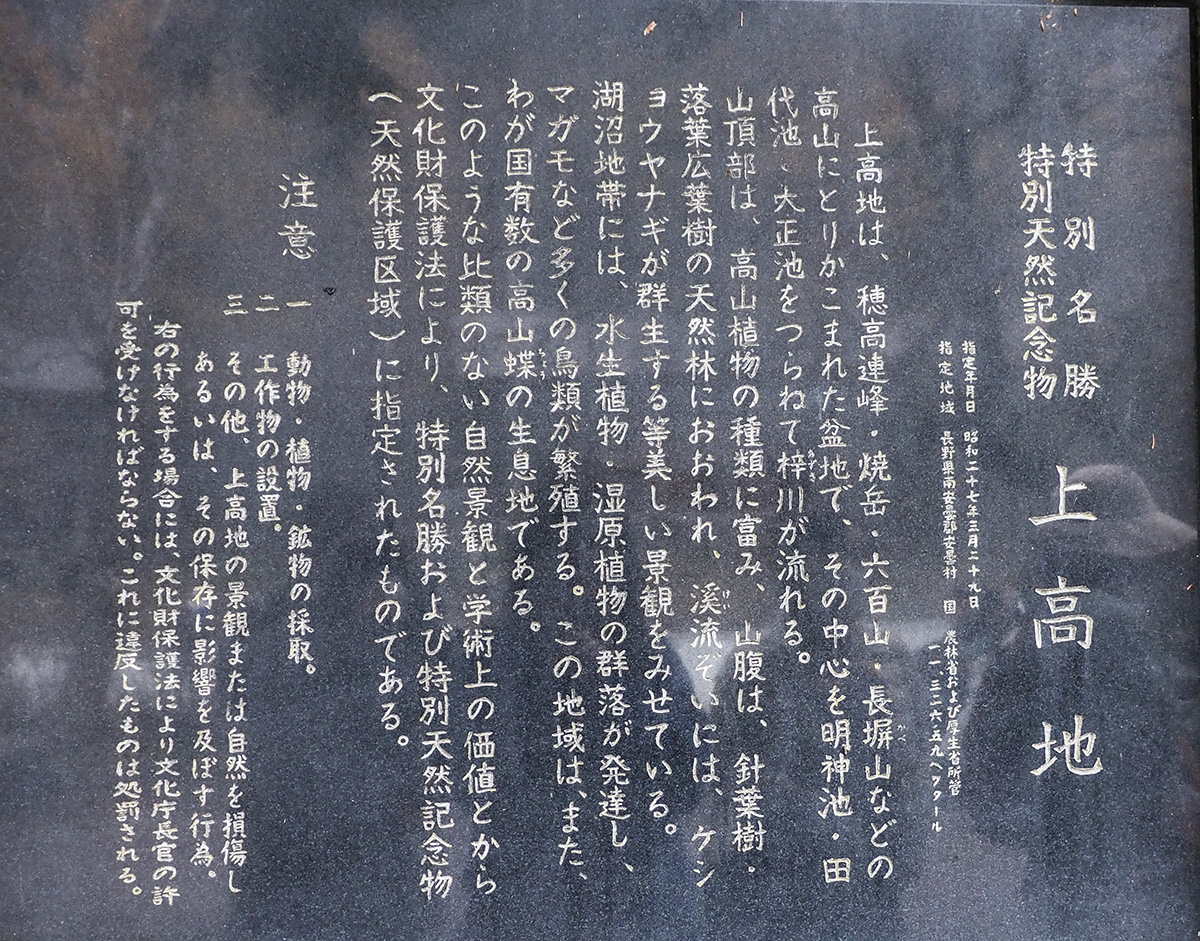 特別名勝
特別天然記念物
上高地
指定年月日 昭和二十七年三月二十九日
指定地域 長野県南安曇郡安曇村 国 農林省および厚生省所管
一一、三二六・五九ヘクタール
上高地は、穂高連峰・焼岳・六百山・長塀山などの
高山にとりかこまれた盆地で、その中心を明神池・田
代池・大正池をつらねて梓川が流れる。
山頂部は、高山植物の種類に富み、山腹は、針葉樹・
落葉広葉樹の天然林におおわれ、溪流ぞいには、ケシ
ョウヤナギが群生する等美しい景観をみせている。
湖沼地帯には、水生植物・湿原植物の群落が発達し、
マガモなど多くの鳥類が繁殖する。この地域は、また、
わが国有数の高山蝶の生息地である。
このような比類のない自然景観と学術上の価値とから
文化財保護法により、特別名勝および特別天然記念物
（天然保護区域）に指定されたものである。
注意
一 動物・植物・鉱物の採取。
二 工作物の設置。
三 その他、上高地の景観または自然を損傷し
あるいは、その保存に影響を及ぼす行為。
右の行為をする場合には、文化財保護法により文化庁長官の許
可を受けなければならない。これに違反したものは処罰される。